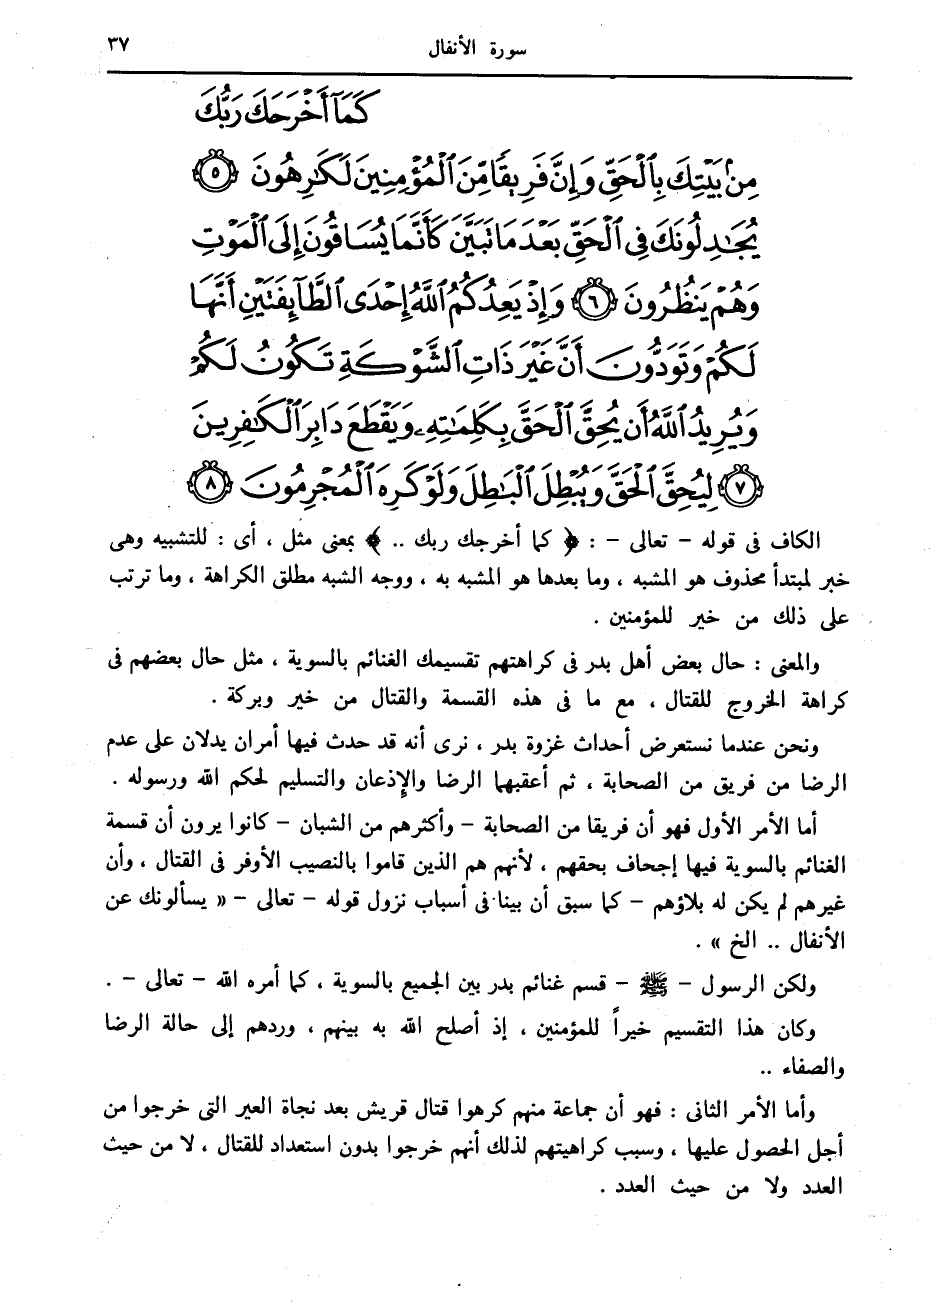 سورة الأنفال ٣٧
كَمَآ أَخْرَجَكَ رَبُّكَ
مِنۢ بَيْتِكَ بِٱلْحَقِّ وَإِنَّ فَرِيقًا مِّنَ ٱلْمُؤْمِنِينَ لَكَٰرِهُونَ ٥
يُجَٰدِلُونَكَ فِى ٱلْحَقِّ بَعْدَ مَا تَبَيَّنَ كَأَنَّمَا يُسَاقُونَ إِلَى ٱلْمَوْتِ
وَهُمْ يَنظُرُونَ ٦ وَإِذْ يَعِدُكُمُ ٱللَّهُ إِحْدَى ٱلطَّآئِفَتَيْنِ أَنَّهَا
لَكُمْ وَتَوَدُّونَ أَنَّ غَيْرَ ذَاتِ ٱلشَّوْكَةِ تَكُونُ لَكُمْ
وَيُرِيدُ ٱللَّهُ أَن يُحِقَّ ٱلْحَقَّ بِكَلِمَٰتِهِۦ وَيَقْطَعَ دَابِرَ ٱلْكَٰفِرِينَ
٧ لِيُحِقَّ ٱلْحَقَّ وَيُبْطِلَ ٱلْبَٰطِلَ وَلَوْ كَرِهَ ٱلْمُجْرِمُونَ ٨
الكاف فى قوله - تعالى - : ﴿ كما أخرجك ربك .. ﴾ بمعنى مثل ، أى : للتشبيه وهى
خبر لمبتدأ محذوف هو المشبه ، وما بعدها هو المشبه به ، ووجه الشبه مطلق الكراهة ، وما ترتب
على ذلك من خير للمؤمنين .
والمعنى : حال بعض أهل بدر فى كراهتهم تقسيمك الغنائم بالسوية ، مثل حال بعضهم فى
كراهة الخروج للقتال ، مع ما فى هذه القسمة والقتال من خير وبركة .
ونحن عندما نستعرض أحداث غزوة بدر ، نرى أنه قد حدث فيها أمران يدلان على عدم
الرضا من فريق من الصحابة ، ثم أعقبهما الرضا والإذعان والتسليم لحكم الله ورسوله .
أما الأمر الأول فهو أن فريقا من الصحابة - وأكثرهم من الشبان - كانوا يرون أن قسمة
الغنائم بالسوية فيها إجحاف بحقهم ، لأنهم هم الذين قاموا بالنصيب الأوفر فى القتال ، وأن
غيرهم لم يكن له بلاؤهم - كما سبق أن بينا فى أسباب نزول قوله - تعالى - « يسألونك عن
الأنفال .. الخ » .
ولكن الرسول - ﷺ - قسم غنائم بدر بين الجميع بالسوية ، كما أمره الله - تعالى - .
وكان هذا التقسيم خيراً للمؤمنين ، إذ أصلح الله به بينهم ، وردهم إلى حالة الرضا
والصفاء ..
وأما الأمر الثانى : فهو أن جماعة منهم كرهوا قتال قريش بعد نجاة العير التى خرجوا من
أجل الحصول عليها ، وسبب كراهيتهم لذلك أنهم خرجوا بدون استعداد للقتال ، لا من حيث
العدد ولا من حيث العدد .